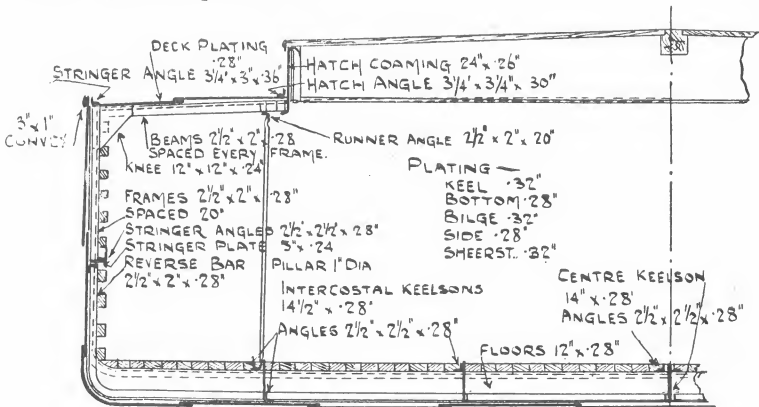 DECK PLATING
.28"
STRINGER ANGLE 3¼" x 3" x .36"
3" x 1"
CONVEX
HATCH COAMING 24" x .26"
HATCH ANGLE 3¼" x 3¼" x 30"
BEAMS 2½" x 2" x .28
SPACED EVERY FRAME.
KNEE 12" x 12" x .24"
RUNNER ANGLE 2½" x 2" x 20"
FRAMES 2½" x 2" x .28"
SPACED 20"
STRINGER ANGLES 2½" x 2½" x 28"
STRINGER PLATE 5" x .24
REVERSE BAR
2½" x 2" x .28"
PLATING —
KEEL .32"
BOTTOM .28"
BILGE .32"
SIDE .28"
SHEERST. .32"
PILLAR 1" DIA
INTERCOSTAL KEELSONS
14½" x .28"
ANGLES 2½" x 2½" x .28"
CENTRE KEELSON
14" x .28'
ANGLES 2½" x 2½" x .28"
FLOORS 12" x .28"